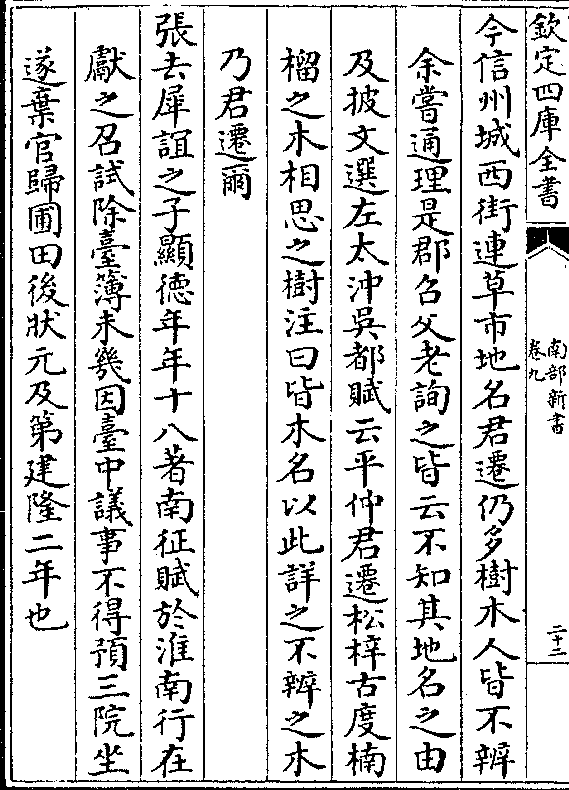 欽定四庫全書
南部新書
卷九
二十二
今信州城西街連草市地名君遷仍多樹木人皆不辨
余嘗通理是郡召父老詢之皆云不知其地名之由
及披文選左太沖吳都賦云平仲君遷松梓古度楠
榴之木相思之樹注曰皆木名以此詳之不辨之木
乃君遷爾
張去犀誼之子顯徳年年十八著南征賦於淮南行在
獻之召試除臺簿未幾因臺中議事不得預三院坐
遂棄官歸圃田後狀元及第建隆二年也